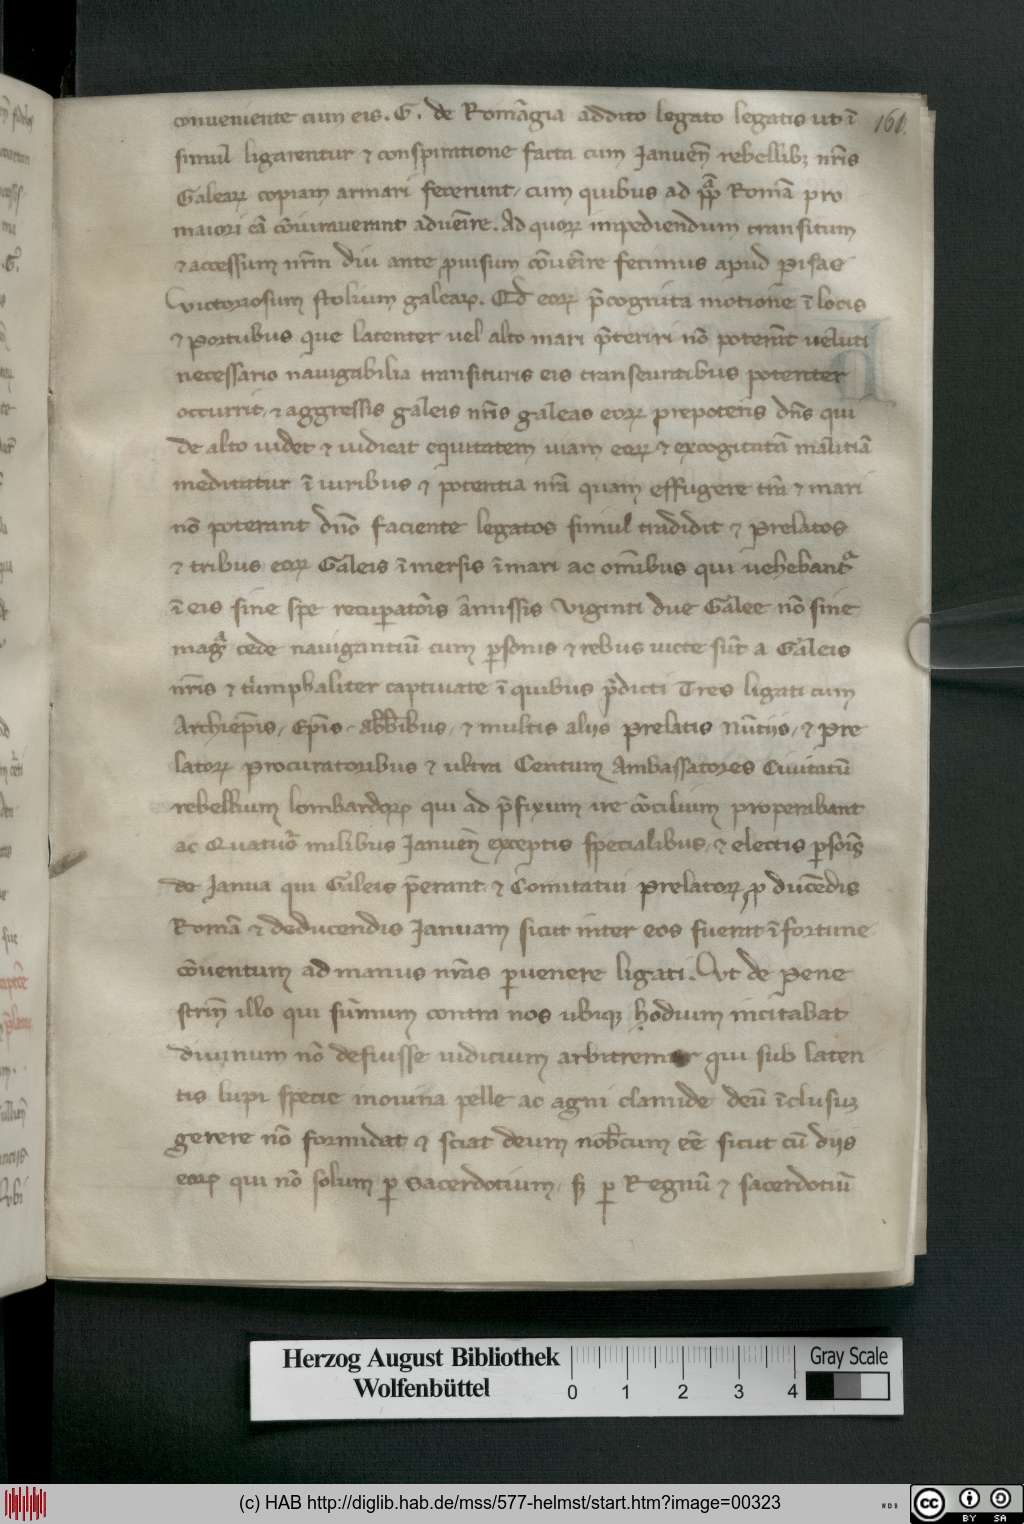 conueniente cum eis. G. de Romãgia addito legato legatis ut ĩ
160.
simul ligarentur ⁊ conspiratione facta cum Janueñ rebellibꝫ nr̃is
Galeaꝝ copiam armari fecerunt, cum quibus ad Romã pro
maiori cã cõiurauerant aduẽire. Ad quoꝝ impediendum transitum
⁊ accessum nr̃m diu ante ꝓuisum cõuẽire fecimus apud Pisas
victoriosum stolium galeaꝝ. Ad eoꝝ p̃cognita motione ĩ locis
⁊ portubus que latenter uel alto mari p̃teriri nõ poterãt ueluti
necessario nauigabilia transituris eis transeuntibus potenter
occurrit, ⁊ aggressis galeis nr̃is galeas eoꝝ prepotens dñs qui
de alto uidet ⁊ iudicat equitatem uiam eoꝝ ⁊ excogitatã malitiã
meditatur ĩ iuribus ⁊ potentia nr̃a quam effugere tr̃a ⁊ mari
nõ poterant dño faciente legatos simul tradidit ⁊ prelatos
⁊ tribus eoꝝ Galeis ĩmersis ĩ mari ac omĩbus qui uehebant᷑
ĩ eis sine spe recuperatõis amissis Viginti due Galee nõ sine
mag᷑ cede nauigantiũ cum ꝑsonis ⁊ rebus uicte sũt a Galeis
nr̃is ⁊ triumphaliter captiuate ĩ quibus p̃dicti Tres ligati cum
Archiep̃is, Ep̃is, abb̃ibus, ⁊ multis alijs prelatis Nũtijs, ⁊ Pre
latoꝝ procuratoribus ⁊ ultra Centum Ambassatores Ciuitatũ
rebellium lombardoꝝ qui ad p̃fixum ire cõcilium properabant
ac Quatuor milibus Januẽn exceptis specialibus, ⁊ electis ꝑsõis
de Janua qui Galeis p̃erant ⁊ Comitatiui prelatoꝝ ꝓ ducẽdis
Romã ⁊ deducendis Januam sicut inter eos fuerat ĩfortune
cõuentum ad manus nr̃as ꝑuenere ligati. Vt de Pene
strin̄ illo qui sũmum contra nos ubiqꝫ hodium incitabat
diuinum nõ defuisse iudicium arbitremur qui sub laten
tis lupi specie in ouina pelle ac agni clamide deũ ĩclusuꝫ
gerere nõ formidat ⁊ sciat deum nob̃cum eẽ sicut cũ dijs
eoꝝ qui nõ solum ꝑ Sacerdotium, sꝫ ꝑ Regnũ ⁊ sacerdotiũ
Herzog August Bibliothek
Wolfenbüttel
0 1 2 3 4
Gray Scale
(c) HAB http://diglib.hab.de/mss/577-helmst/start.htm?image=00323
WDB
cc BY SA